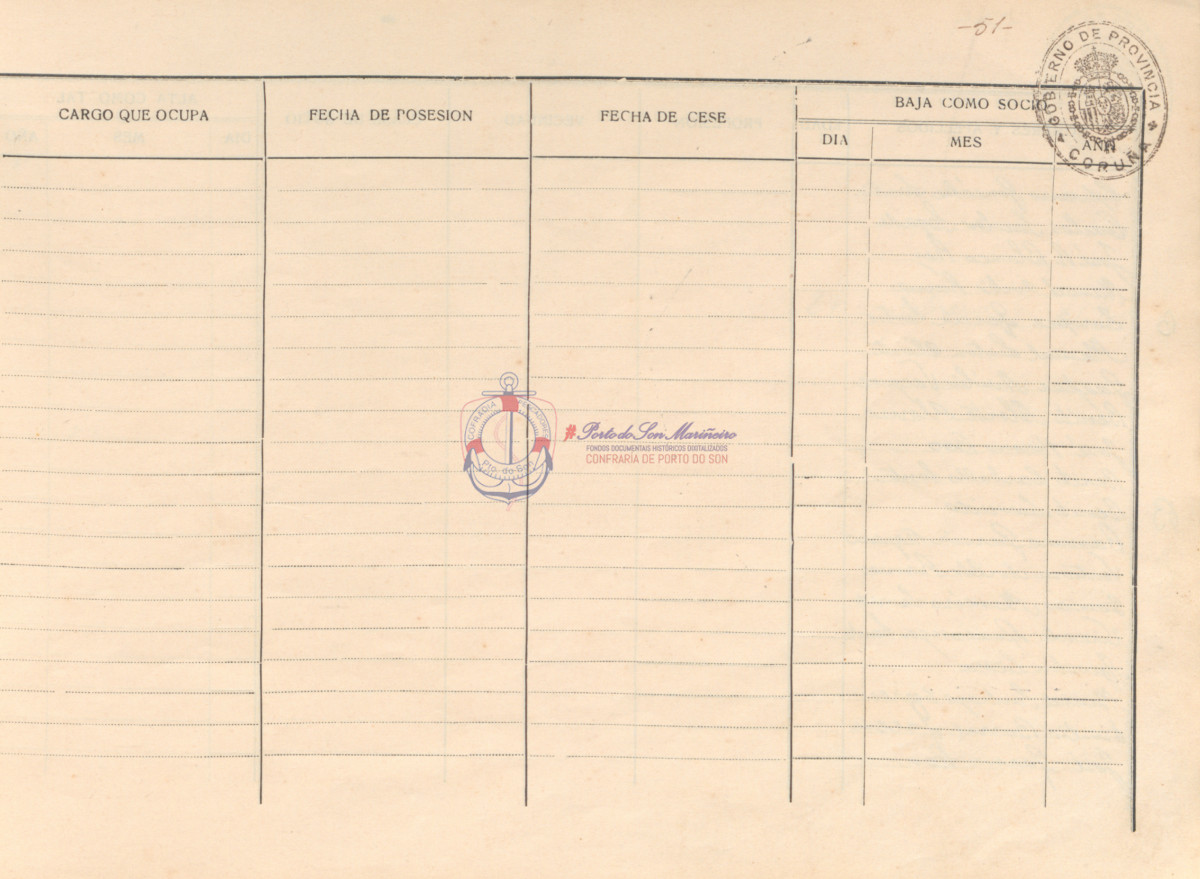 -51-
GOBIERNO DE PROVINCIA
* CORUÑA *
CARGO QUE OCUPA
FECHA DE POSESION
FECHA DE CESE
BAJA COMO SOCIO
DIA
MES
AÑO
COFRADIA PESCADORES
Pto. do Son
#Porto do Son Mariñeiro
FONDOS DOCUMENTAIS HISTÓRICOS DIGITALIZADOS
CONFRARÍA DE PORTO DO SON